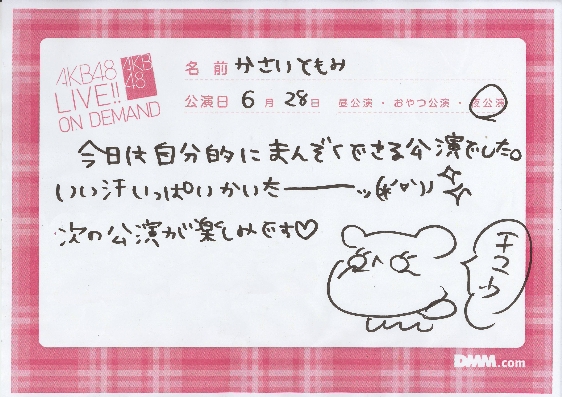 AKB48
LIVE!!
ON DEMAND
AKB
48
名前 かさいともみ
公演日 6月 28日 昼公演・おやつ公演・夜公演
今日は自分的にまんぞくできる公演でした。
いい汗いっぱいかいたーーーッ(*'▽'))
次の公演が楽しみです♡
DMM.com